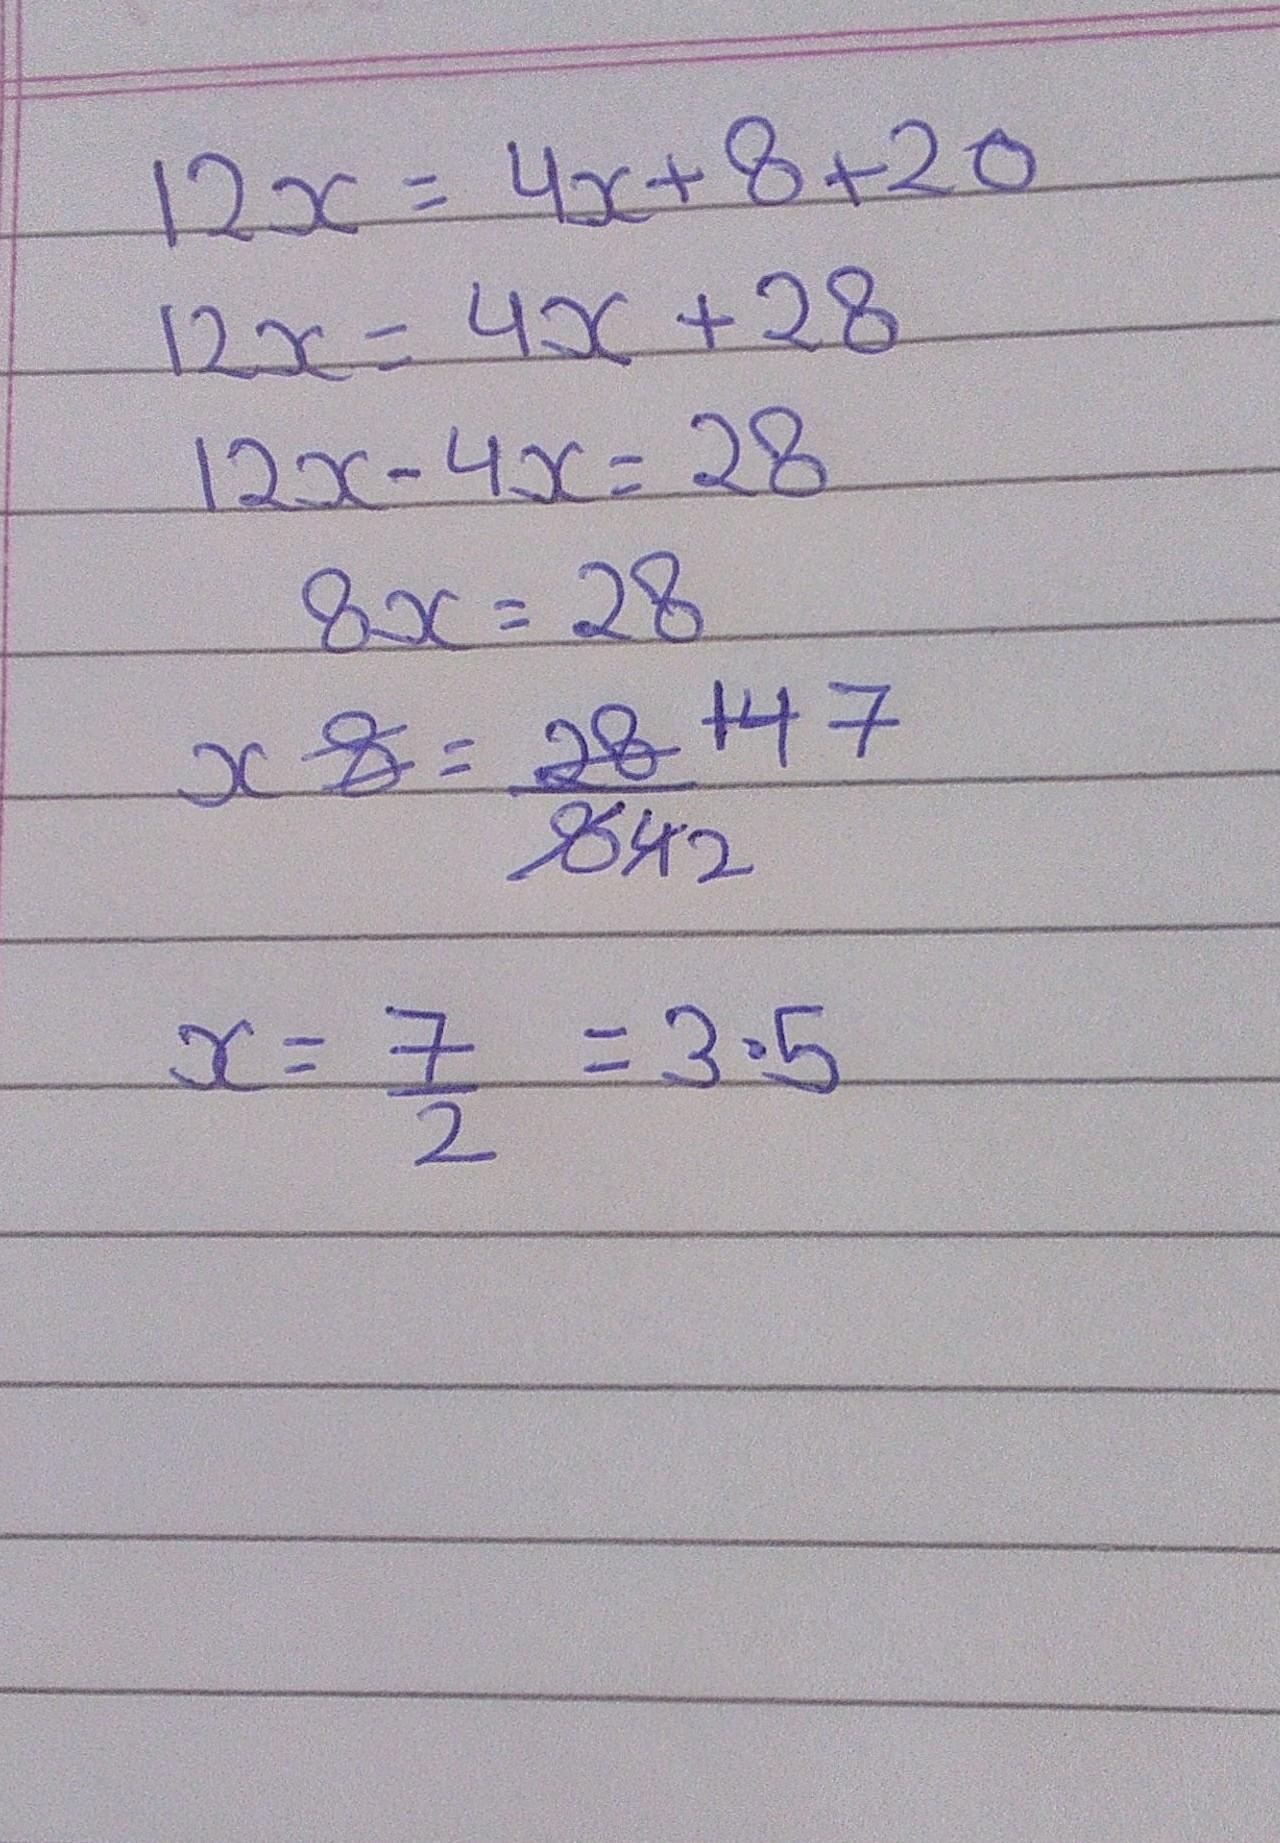 12x = 4x + 8 + 20
12x = 4x + 28
12x - 4x = 28
8x = 28
x 8 = 28 14 7
8 4 2
x = 7 = 3.5
2